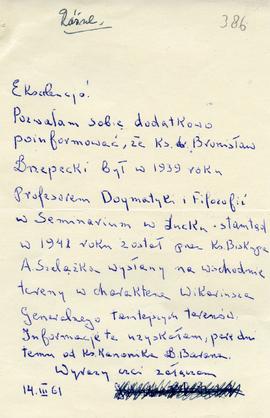 Różne.
386
Ekscelencjo!
Pozwalam sobie dodatkowo
poinformować, że Ks. dr. Bronisław
Brzepecki był w 1939 roku
Profesorem Dogmatyki i Filozofii
w Seminarium w Łucku - stamtąd
w 1942 roku został przez Ks. Biskupa
A. Szelążka wysłany na wschodnie
tereny w charakterze Wikariusza
Generalnego tamtejszych terenów.
Informacje te uzyskałam, parę dni
temu od Ks. Kanonika B. Barana.
Wyrazy czci załączam
14.III 61